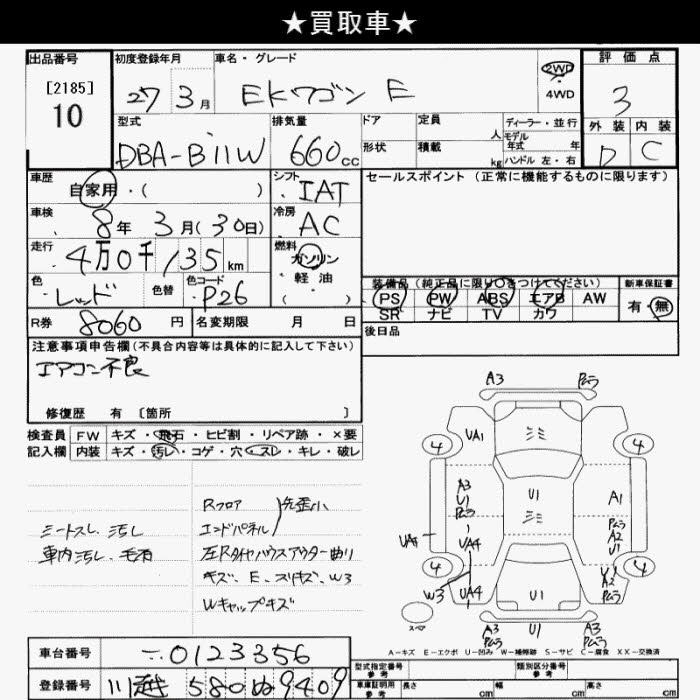 ★買取車★
出品番号 初度登録年月 車名・グレード 評価点
[2185]
10
27 3月 EKワゴン E 2WD 4WD 3
型式 排気量 ドア 定員 人 ディーラー・並行 外装 内装
DBA-B11W 660cc 形状 積載 kg モデル年式 年 ハンドル 左・右 D C
車歴 シフト セールスポイント (正常に機能するものに限ります)
自家用・( ) IAT
車検 冷房
8年 3月(30日) AC
走行 燃料
4万0千135km ガソリン・軽油
色 色替 色コード ( ) 装備品(純正品に限り○をつけてください) 新車保証書
レッド P26 PS PW ABS エアB AW 有・無
SR ナビ TV カワ
R券 8060円 名変期限 月 日 後日品
注意事項申告欄(不具合内容等は具体的に記入して下さい)
エアコン不良
修復歴 有 [箇所 ]
検査員記入欄 FW キズ・飛石・ヒビ割・リペア跡・×要
内装 キズ・汚レ・コゲ・穴・スレ・キレ・破レ
Rフロア
エンドパネル
先歪小
シートスレ、汚し
車内汚し、毛有
左Rタイヤハウスアウター曲り
キズ、E、スリキズ、W3
Wキャップキズ
A3 Pムラ
4 UA1 4
A3 U1 Pムラ U1 A1
UA4 UA4 Pムラ A2 U1
4 4
W3 UA4 U1 U1 A2 Pムラ
スペア A3 Pムラ U1 A3 Pムラ
A-キズ E-エクボ U-凹み W-補修跡 S-サビ C-腐食 XX-交換済
車台番号 0123356
登録番号 川越 580 ぬ 9409
型式指定番号 参考 類別区分番号 参考
車庫証明用 参考 長さ cm 幅 cm 高さ cm